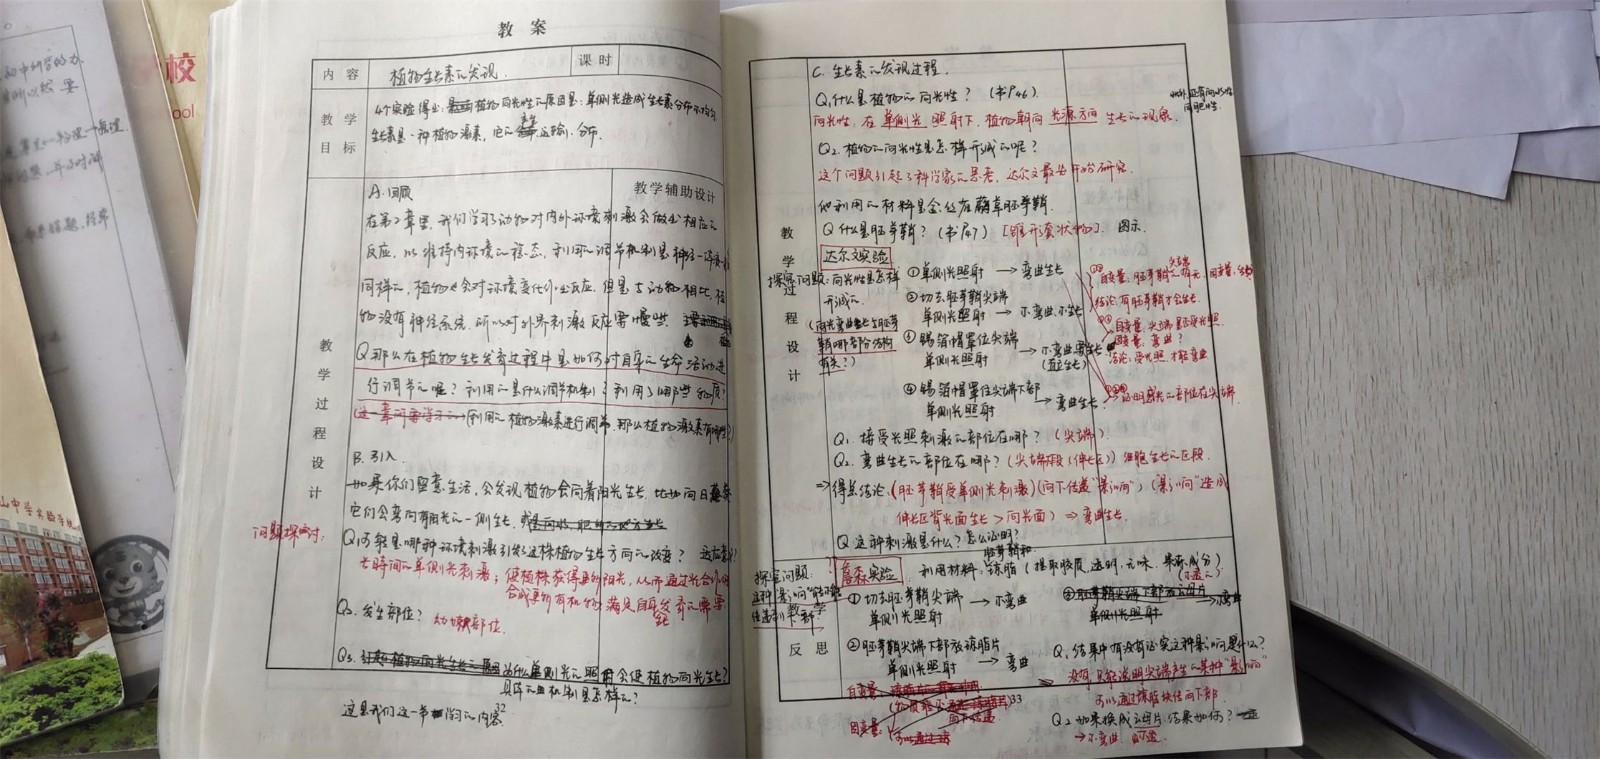 教 案
内 容
植物生长素的发现.
课 时
教 学
目 标
4个实验得出:植物向光性的原因是:单侧光造成生长素分布不均匀
生长素是一种植物激素,它的 运输、分布.
教 学 过 程 设 计
教学辅助设计
A.回顾
在第2章里,我们学习了动物对内外环境刺激会做出相应的
反应,以维持内环境的稳态,利用的调节机制是神经一体液
同样的,植物也会对环境变化作出反应,但是与动物相比,植
物没有神经系统,所以对外界刺激反应要慢些.
Q 那么在植物生长发育过程中是如何对自身的生命活动进
行调节的呢?利用的是什么调节机制?利用了哪些物质?
利用的植物激素进行调节.那么植物激素有哪些?
B.引入
如果你们留意生活,会发现植物会向着阳光生长,比如向日葵
它们会弯向有阳光的一侧生长.
问题探讨:
Q1 可能是哪种环境刺激引发了这株植物生长方向的改变?
长时间的单侧光刺激;使植株获得更多阳光,从而通过光合作用
合成更多有机物,满足自身发育的需要
Q2.发生部位? 幼嫩部位.
Q3. 为什么单侧光的照射会使植物向光生长?
具体的机制是怎样的?
这是我们这一节学习的内容.
32
C.生长素的发现过程.
Q1什么是植物的向光性? (书P46)
此外,还有向水性
向肥性
向光性,在单侧光照射下,植物朝向光源方向生长的现象.
Q2.植物的向光性是怎样形成的呢?
这个问题引起了科学家的思考,达尔文最先开始研究.
他利用的材料是金丝雀虉草胚芽鞘.
Q 什么是胚芽鞘?(书P47) [锥形套状物]. 图示.
教 学 过 程 设 计
达尔文实验
探究问题:向光性是怎样
形成的.
(向光弯曲生长与胚芽
鞘哪部分结构
有关?)
①单侧光照射 → 弯曲生长
②切去胚芽鞘尖端
单侧光照射 → 不弯曲.不生长
③锡箔帽罩住尖端
单侧光照射 → 不弯曲 生长
(直立生长)
④锡箔帽罩住尖端下部
单侧光照射 → 弯曲生长
①② 自变量,胚芽鞘尖端有无 因变量,生长
结论:有胚芽鞘才会生长.
自变量,尖端是否受光照.
因变量,弯曲?
结论,受光照,才能弯曲
证明感光的部位在尖端.
Q1 接受光照刺激的部位在哪?(尖端).
Q2.弯曲生长的部位在哪?(尖端下段(伸长区))细胞生长的区段.
⇒得出结论,(胚芽鞘受单侧光刺激)(向下传递“影响”)(“影响”造成
伸长区背光面生长>向光面)⇒弯曲生长.
Q 这种刺激是什么?怎么证明?
教 学
反 思
探究问题:
这种“影响”能不能
传递到下部?
詹森实验
胚芽鞘和
利用材料:琼脂(提取胶质,透明,无味,果冻成分)
①切去胚芽鞘尖端
单侧光照射 → 不弯曲
②胚芽鞘尖端下部放琼脂片
单侧光照射 → 弯曲
单侧光照射 → 不弯曲
Q1 结果中有没有证实这种影响是什么?
没有,只能说明尖端产生的某种“影响”
可以通过琼脂块传向下部.
Q2 如果换成云母片,结果如何?
→不弯曲.
自变量:
因变量:
33